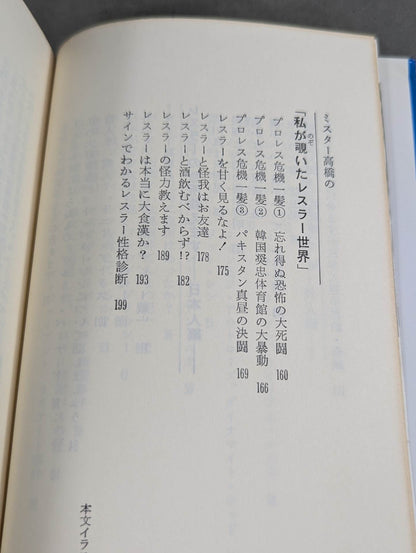 ミスター高橋の
「私が覗いたレスラー世界」
のぞ
プロレス危機一髪① 忘れ得ぬ恐怖の大死闘 160
プロレス危機一髪② 韓国奨忠体育館の大暴動 166
プロレス危機一髪③ パキスタン真昼の決闘 169
レスラーを甘く見るなよ! 175
レスラーと怪我はお友達 178
レスラーと酒飲むべからず!? 182
レスラーの怪力教えます 189
レスラーは本当に大食漢か? 193
サインでわかるレスラー性格診断 199
本文イラ